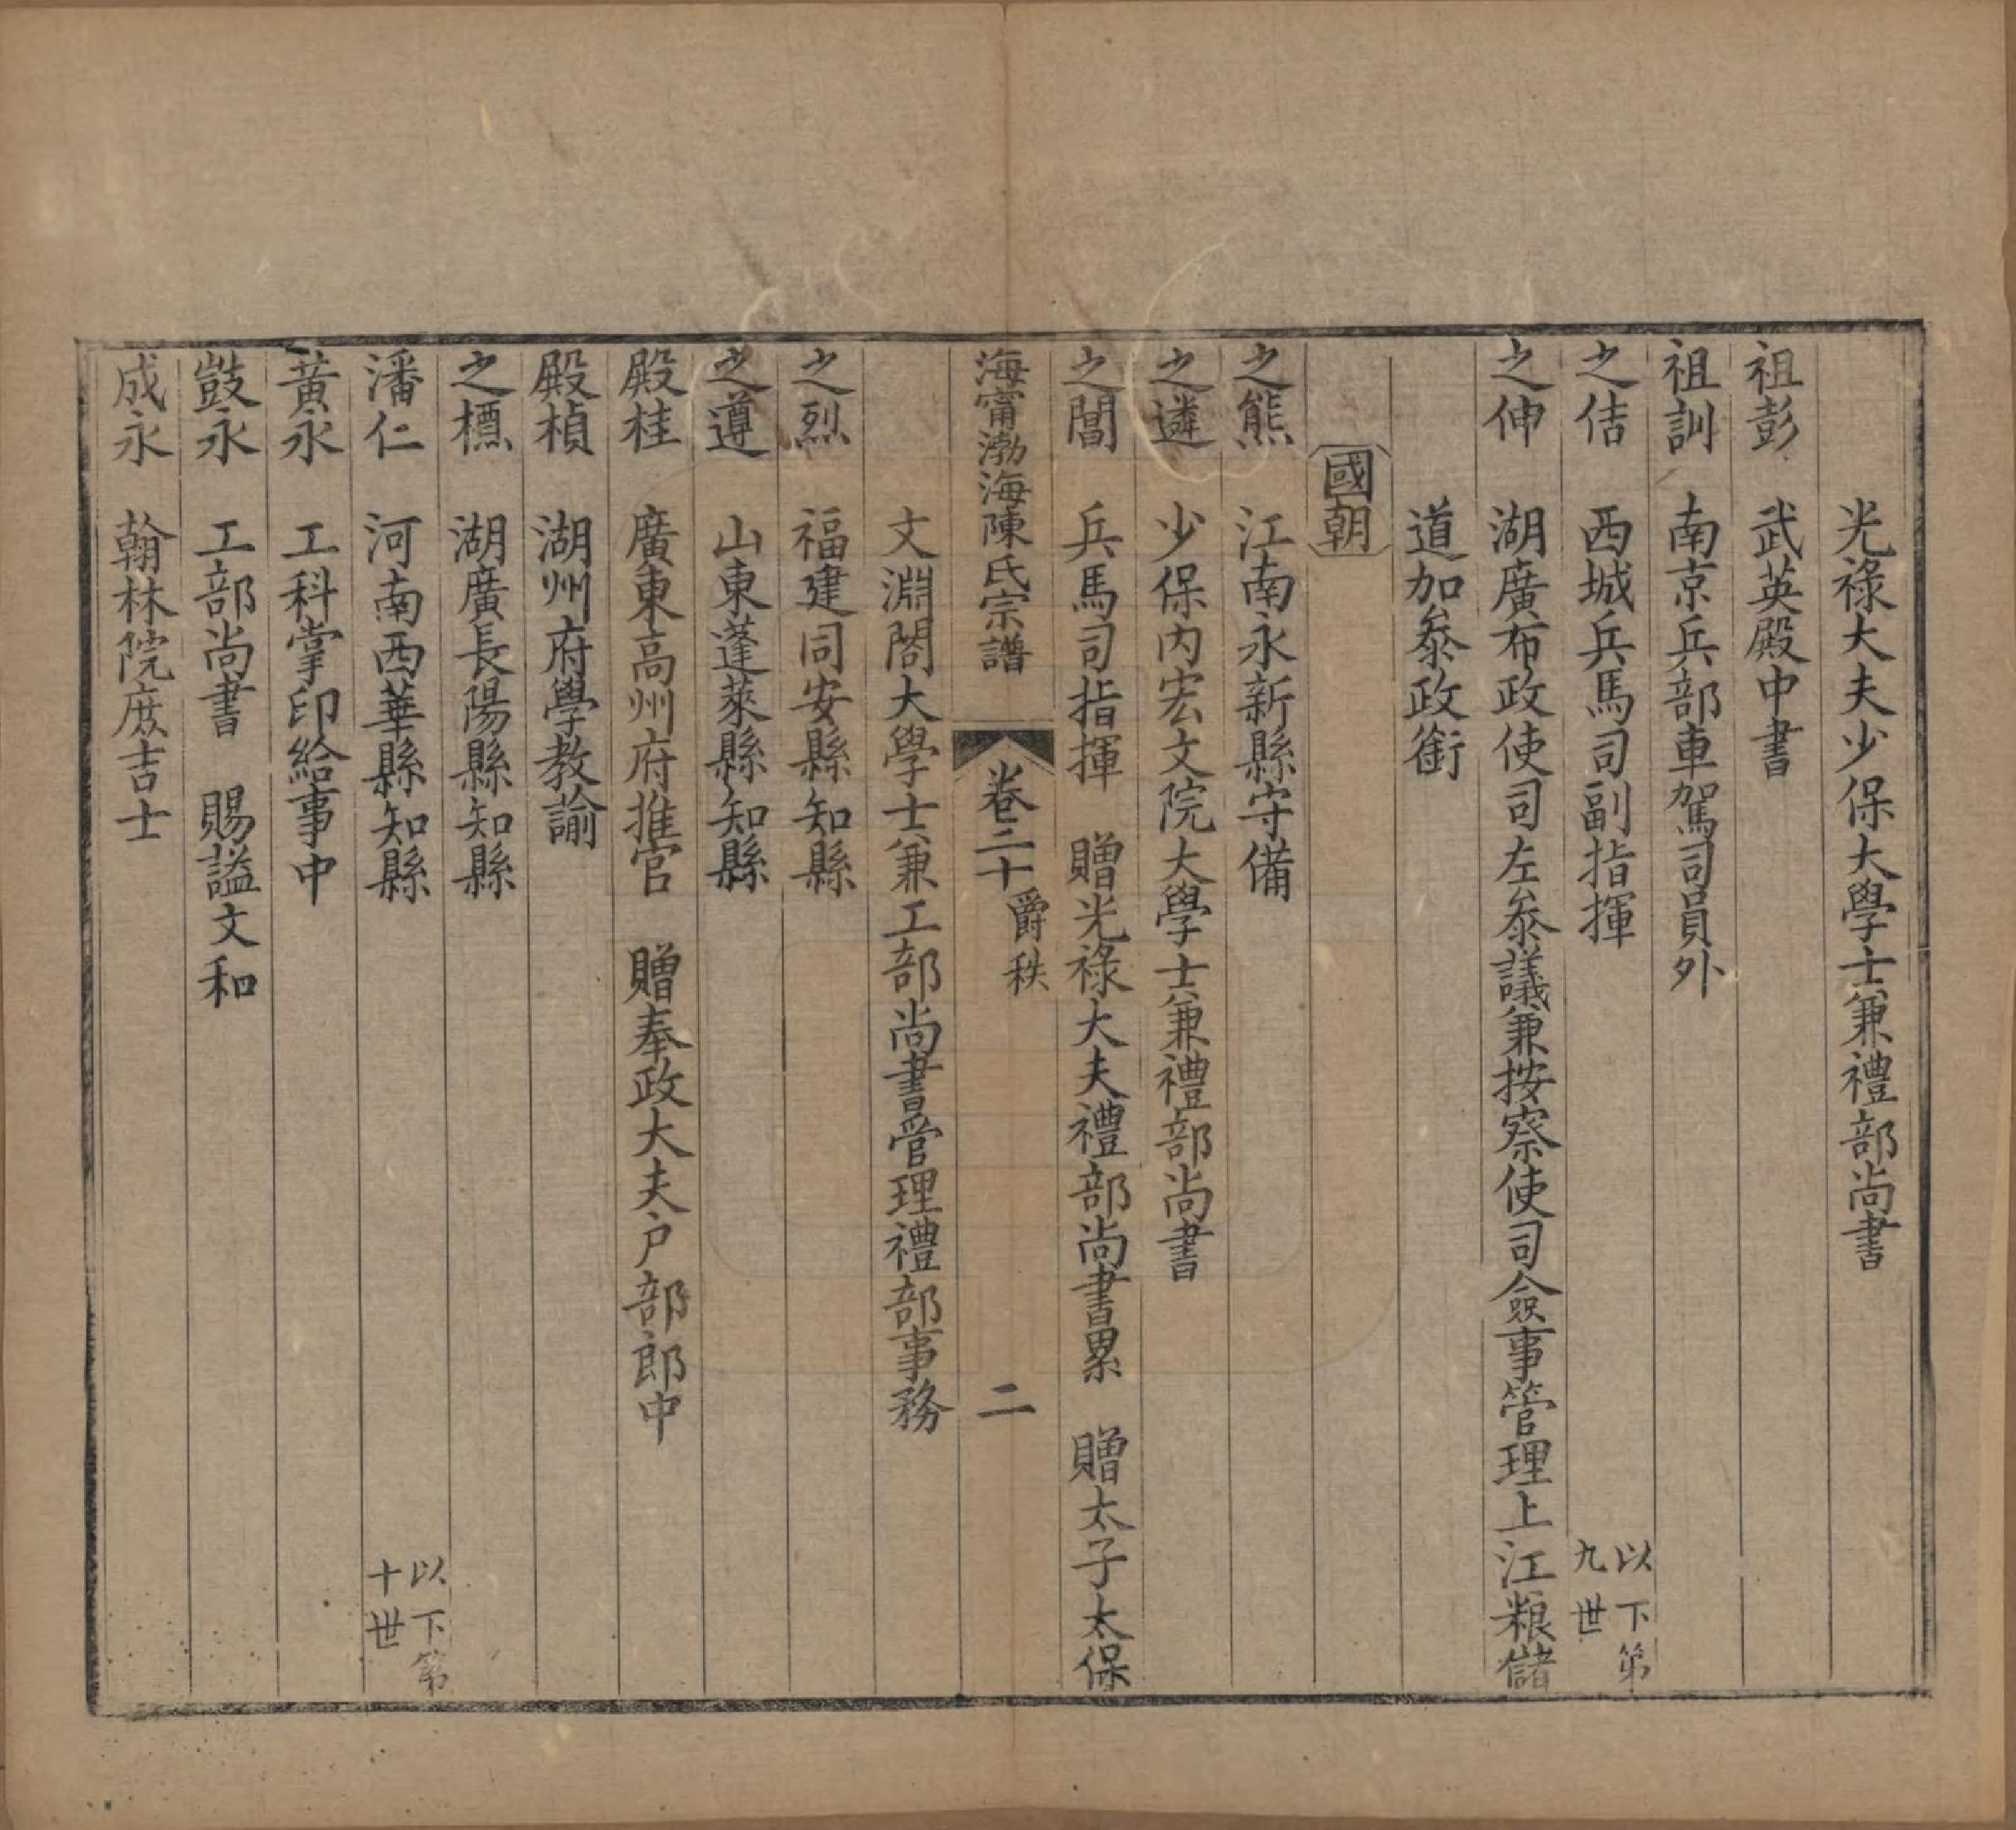 光祿大夫少保大學士兼禮部尚書
祖彭　武英殿中書
祖訓　南京兵部車駕司員外
之佶　西城兵馬司副指揮　以下第九世
之伸　湖廣布政使司左叅議兼按察使司僉事管理上江粮儲
道加叅政銜
國朝
之熊　江南永新縣守備
之遴　少保內宏文院大學士兼禮部尚書
之閶　兵馬司指揮　贈光祿大夫禮部尚書累　贈太子太保
海甯渤海陳氏宗譜　卷二十　爵秩　二
文淵閣大學士兼工部尚書管理禮部事務
之烈　福建同安縣知縣
之遵　山東蓬萊縣知縣
殿桂　廣東高州府推官　贈奉政大夫户部郎中
殿楨　湖州府學教諭
之標　湖廣長陽縣知縣
潘仁　河南西華縣知縣　以下第十世
黃永　工科掌印給事中
敱永　工部尚書　賜諡文和
成永　翰林院庻吉士